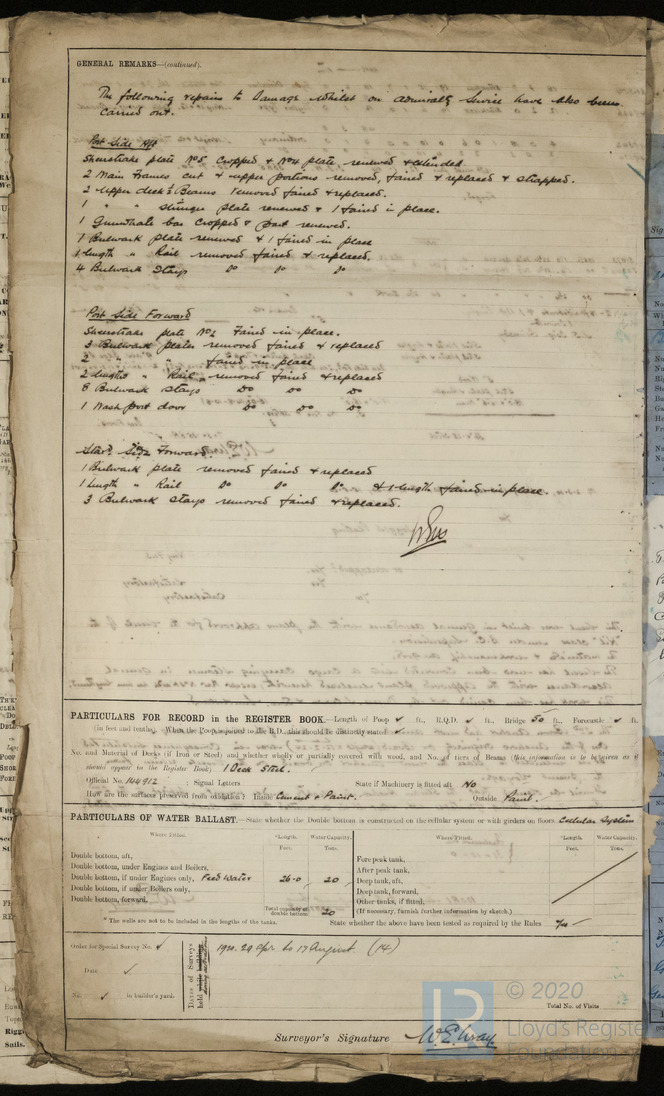 GENERAL REMARKS—(continued).
The following repairs to Damage whilst on Admiralty Service have also been
carried out.
Port Side Aft
Sheerstrake plate No 5 cropped & No 4 plate renewed & extended.
2 Main Frames cut & upper portions removed, faired & replaced & strapped.
2 upper deck Beams removed faired & replaced.
1 " " stringer plate renewed & 1 faired in place.
1 Gunwhale bar cropped & part renewed.
1 Bulwark plate renewed & 1 faired in place
1 length " Rail removed faired & replaced.
4 Bulwark Stays Do Do Do
Port Side Forward
Sheerstrake plate No 2 faired in place.
3 Bulwark plates removed faired & replaced
2 " " faired in place
2 lengths " Rail removed faired & replaced
8 Bulwark Stays Do Do Do
1 Wash port door Do Do Do
Starbd Side Forward.
1 Bulwark plate removed faired & replaced
1 length " Rail Do Do Do & 1 length faired in place.
3 Bulwark stays removed faired & replaced.
PARTICULARS FOR RECORD in the REGISTER BOOK.—Length of Poop ✓ ft., R.Q.D. ✓ ft., Bridge 50 ft., Forecastle ✓ ft.
(in feet and tenths). When the Poop is joined to the B.D., this should be distinctly stated ✓
No. and Material of Decks (if Iron or Steel) and whether wholly or partially covered with wood, and No. of tiers of Beams (this information is to be given as it
should appear in the Register Book) 1 Deck Steel.
Official No. 144912 ; Signal Letters State if Machinery is fitted aft No
How are the surfaces preserved from oxidation? Inside Cement & Paint. Outside Paint.
PARTICULARS OF WATER BALLAST.—State whether the Double bottom is constructed on the cellular system or with girders on floors. Cellular System
Where Fitted. *Length. Water Capacity. Where Fitted. *Length. Water Capacity.
Feet. Tons. Feet. Tons.
Double bottom, aft,
Double bottom, under Engines and Boilers,
Double bottom, if under Engines only, Feed Water 26.0 20
Double bottom, if under Boilers only,
Double bottom, forward,
Total capacity of double bottom 20
Fore peak tank,
After peak tank,
Deep tank, aft,
Deep tank, forward,
Other tanks, if fitted,
(If necessary, furnish further information by sketch.)
* The wells are not to be included in the lengths of the tanks.
State whether the above have been tested as required by the Rules Yes
Order for Special Survey No. ✓
Date ✓
No. ✓ in builder's yard.
Dates of Surveys
held while building
1920. 29 Apr. to 17 August. (14)
Total No. of Visits
Surveyor's Signature W. E. Wray
© 2020
Lloyd's Register
Foundation